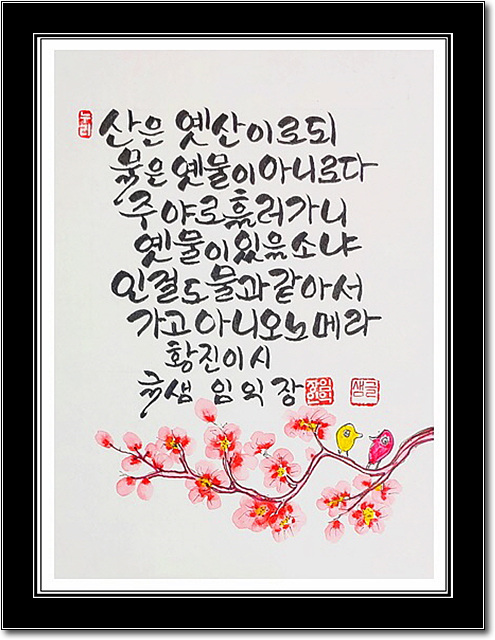 누리
산은 옛산이로되
물은 옛물이아니로다
주야로흘러가니
옛물이있을소냐
인걸도물과같아서
가고아니오노메라
황진이시
글샘 임익장
글샘